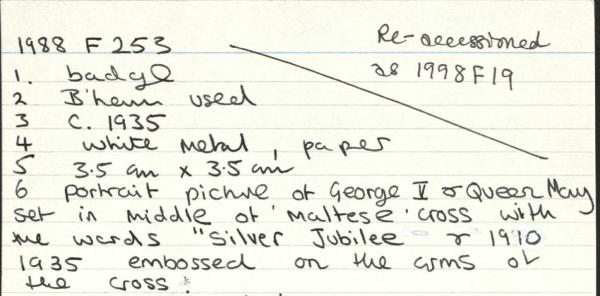 1988 F 253
Re-accessioned
as 1998F19
1. badge
2 B'ham used
3 C. 1935
4 white metal, paper
5 3.5 cm x 3.5 cm
6 portrait picture of George V & Queen Mary
set in middle of 'Maltese' cross with
the words "Silver Jubilee & 1910
1935 embossed on the arms of
the cross.